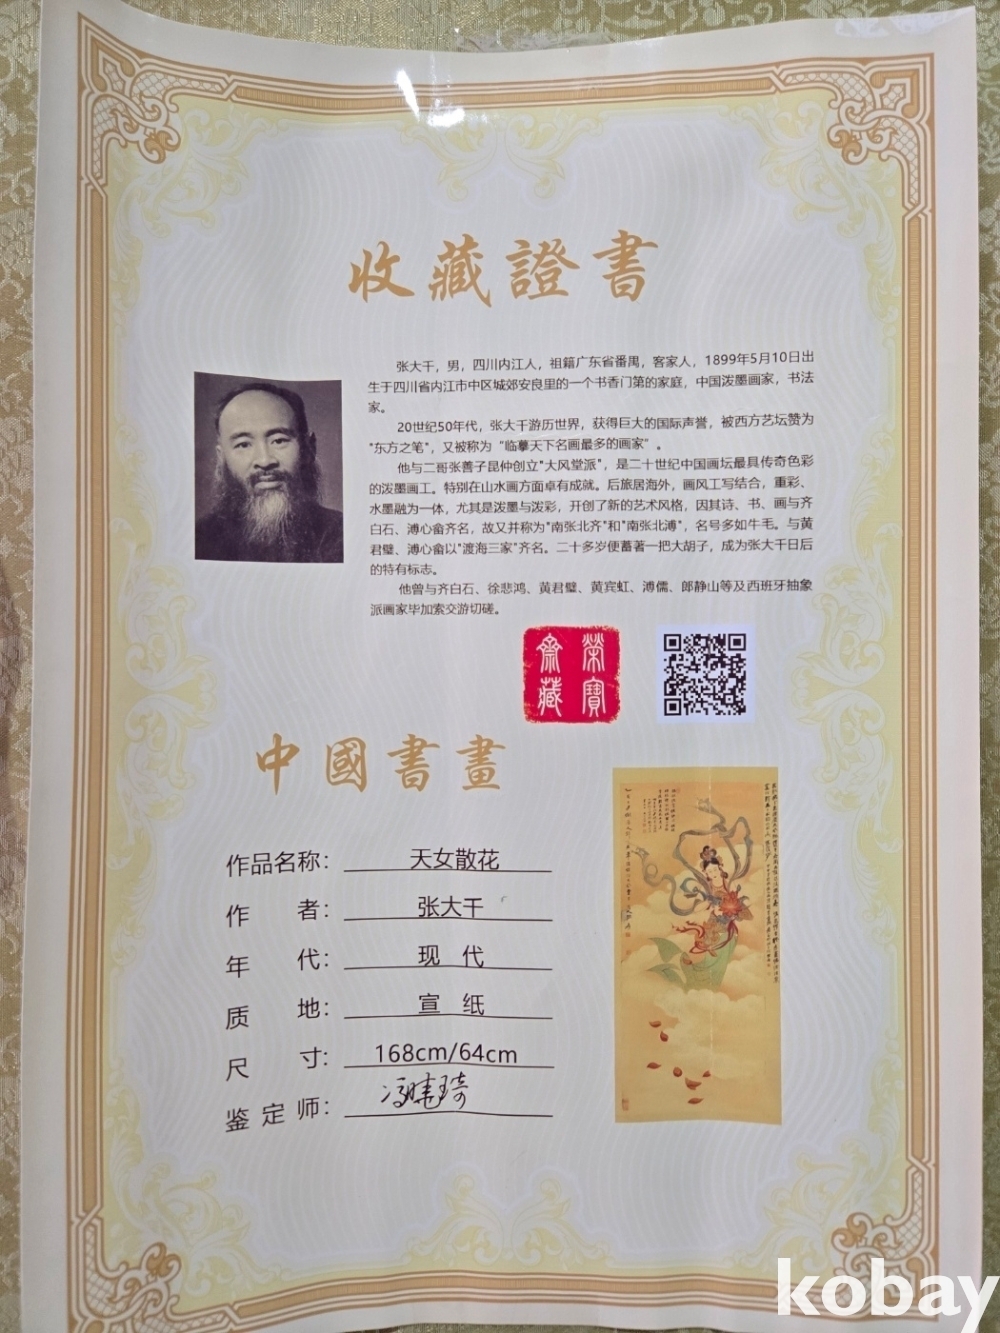 收藏證書
张大千，男，四川内江人，祖籍广东省番禺，客家人，1899年5月10日出
生于四川省内江市中区城郊安良里的一个书香门第的家庭，中国泼墨画家，书法
家。
20世纪50年代，张大千游历世界，获得巨大的国际声誉，被西方艺坛赞为
"东方之笔"，又被称为“临摹天下名画最多的画家”。
他与二哥张善子昆仲创立"大风堂派"，是二十世纪中国画坛最具传奇色彩
的泼墨画工。特别在山水画方面卓有成就。后旅居海外，画风工写结合，重彩、
水墨融为一体，尤其是泼墨与泼彩，开创了新的艺术风格，因其诗、书、画与齐
白石、溥心畲齐名，故又并称为"南张北齐"和"南张北溥"，名号多如牛毛。与黄
君璧、溥心畲以"渡海三家"齐名。二十多岁便蓄著一把大胡子，成为张大千日后
的特有标志。
他曾与齐白石、徐悲鸿、黄君璧、黄宾虹、溥儒、郎静山等及西班牙抽象
派画家毕加索交游切磋。
榮寶
齋藏
中國書畫
作品名称：天女散花
作者：张大干
年代：现代
质地：宣纸
尺寸：168cm/64cm
鉴定师：
kobay